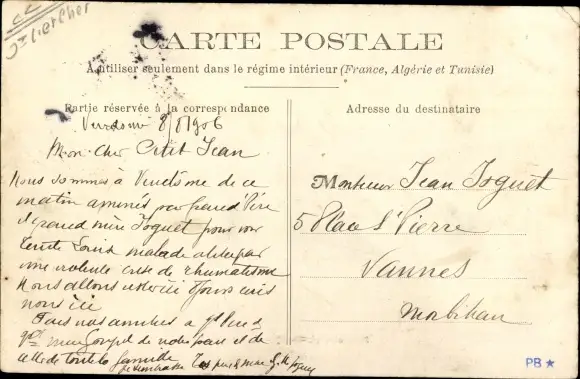 CARTE POSTALE
A utiliser seulement dans le régime intérieur (France, Algérie et Tunisie)
Partie réservée à la correspondance
Adresse du destinataire
Vendôme 8/8/1906
Mon Cher Petit Jean
Nous sommes à Vendôme de ce
matin amenés par grand Père
et grand mère Joguet pour voir
tante Louise malade
une violente crise de rhumatisme
Nous allons rester ici jours
nous ici
Fais nos amitiés à gd Père &
gd mère de notre part et de
celle de toute la famille
Tes père & mère
Monsieur Jean Joguet
5 Place St Pierre
Vannes
Morbihan
PB ★